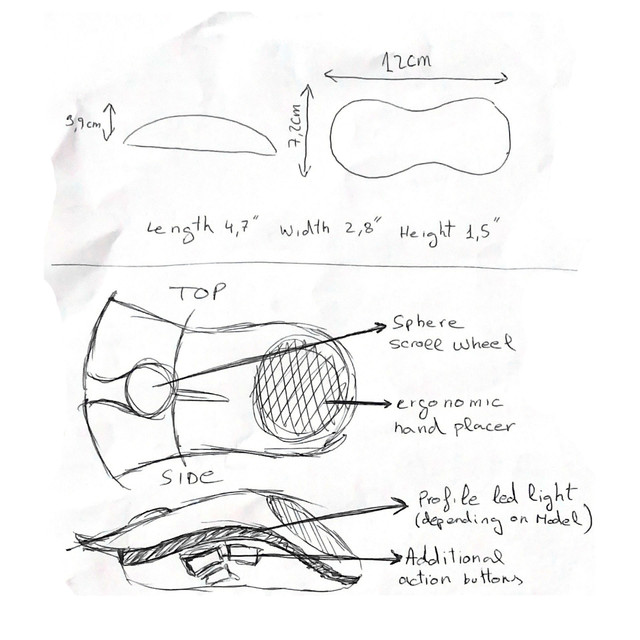 12cm
3,9cm
7,2cm
Length 4,7" Width 2,8" Height 1,5"
TOP
Sphere
scroll wheel
ergonomic
hand placer
SIDE
Profile led light
(depending on Model)
Additional
action buttons